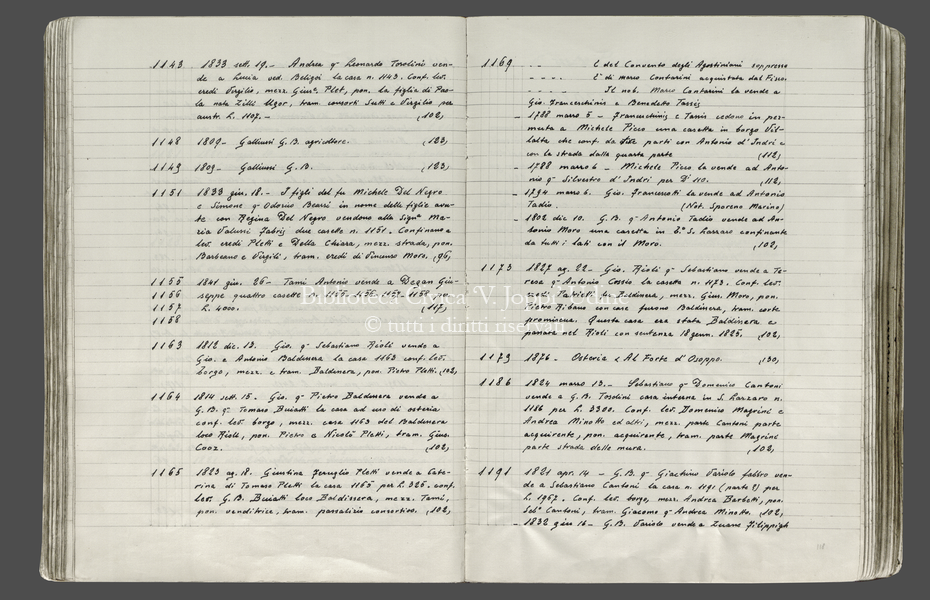 1143 1833 sett. 19.- Andrea q- Leonardo Tosolini ven-
de a Lucia ved. Beligoi la casa n. 1143. Conf. lev.
eredi Virgilio, mezz. Plet, pon. la figlia di Pao-
la nata Zilli tram. consorti Sutti e Virgilio per
austr. L. 1107.- (102)
1148 1809.- Galliussi G. B. agricoltore. (123)
1149 1809.- Galliussi G. B. (123)
1151 1833 giu. 18.- I figli del fu Michele Del Negro
e Simone q- Odorico Bearzi in nome delle figlie avu-
te con Regina Del Negro vendono alla Ma-
ria Valussi Fabris due casette n. 1151. Confinano a
lev. eredi Pletti e Della Chiara, mezz. strada, pon.
Barbeano e Virgili, tram. eredi di Vincenzo Moro. (96)
1155 1841 giu. 26- Tami Antonio vende a Degan Giu-
1156 seppe quattro casette
1157 L. 4000. (117)
1158
1163 1812 dic. 13. Gio. q- Sebastiano Rioli vende a
Gio. e Antonio Baldissera la casa 1163 conf. lev.
borgo, mezz. e tram. Baldissera, pon. Pietro Pletti. (102)
1164 1814 sett. 15. Gio. q- Pietro Baldissera vende a
G. B. q- Tomaso Buiatti la casa ad uso di osteria
conf. lev. borgo, mezz. casa 1163 del Baldissera
loco Rioli, pon. Pietro e Nicolò Pletti, tram. Gius.
Cooz. (102)
1165 1823 ag. 18. Giustina Feruglio Pletti vende a Cate-
rina di Tomaso Pletti la casa 1165 per L. 325. conf.
lev. G. B. Buiatti loco Baldissera, mezz. Tami,
pon. venditrice, tram. passalizio consortivo. (102)
1169 - - È del Convento degli Agostiniani soppresso
- - - - È di Marco Contarini acquistata dal Fisco.
- - - - Il nob. Marco Contarini la vende a
Gio. Franceschinis e Benedetto Tassis
- 1788 marzo 5 - Franceschinis e Tassis cedono in per-
muta a Michele Picco una casetta in borgo Vil-
lalta che conf. da parti con Antonio d'Indri e
con la strada dalla quarta parte (112)
- 1788 marzo 6 - Michele Picco la vende ad Anto-
nio q- Silvestro d'Indri per D' 110. (112)
- 1794 marzo 6. Gio. Francesotti la vende ad Antonio
Tadio. (Not. Sporeno Marino)
- 1802 dic. 10. G. B. q- Antonio Tadio vende ad An-
tonio Moro una casetta in b.° S. Lazzaro confinante
da tutti i lati con il Moro. (102)
1173 1827 ag. 22- Gio. Rioli q- Sebastiano vende a Te-
resa q- Antonio Cossio la casetta n. 1173. Conf. lev.
eredi Baldissera, mezz. Gius. Moro, pon.
Pietro Ribano con case furono Baldissera, tram. corte
promiscua. Questa casa era stata Baldissera e
passata nel Rioli con sentenza 18 genn. 1825. (102)
1173 1876- Osteria « Al Forte d'Osoppo. (30)
1186 1824 marzo 13.- Sebastiano q- Domenico Cantoni
vende a G. B. Tosolini casa interna in S. Lazzaro n.
1186 per L. 3300. Conf. lev. Domenico Magrini e
Andrea Minotto ed altri, mezz. parte Cantoni parte
acquirente, pon. acquirente, tram. parte Magrini
parte strada delle mura. (102)
1191 1821 apr. 14 - G. B. q- Giachino Variolo fabbro ven-
de a Sebastiano Cantoni la casa n. 1191 (parte?) per
L. 1967. Conf. lev. borgo, mezz. Andrea Barbetti, pon.
Seb° Cantoni, tram. Giacomo q- Andrea Minotto. (102)
- 1832 giu 16- G. B. Variolo vende a Filippigh
Biblioteca Civica 'V. Joppi' Udine
© tutti i diritti riservati